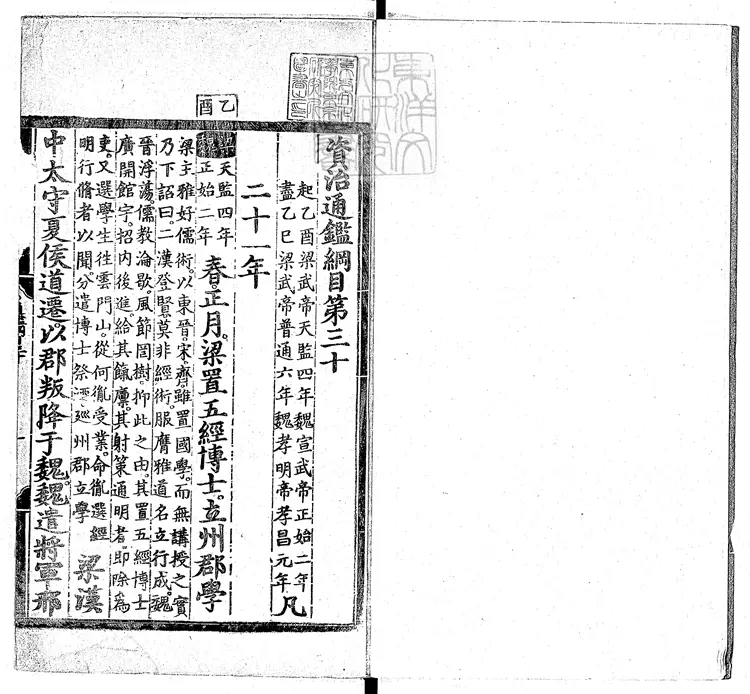 資治通鑑綱目第三十
起乙酉梁武帝天監四年魏宣武帝正始二年
盡乙巳梁武帝普通六年魏孝明帝孝昌元年凡
二十一年
乙酉
梁天監四年
正始二年
春。正月。梁置五經博士。立州郡學
梁主雅好儒術。以東晉。宋。齊。雖置國學。而無講授之實
乃下詔曰。二漢登賢莫非經術。服膺雅道名立行成。魏
晉浮蕩儒教淪歇。風節罔樹。抑此之由。其置五經博士
廣開館宇。招內後進。給其餼廩。其射策通明者。即除為
吏。又選學生往雲門山。從何胤受業。命胤選經
明行脩者以聞。分遣博士祭酒巡州郡立學
梁漢
中太守夏侯道遷。以郡叛降于魏。魏遣將軍邢